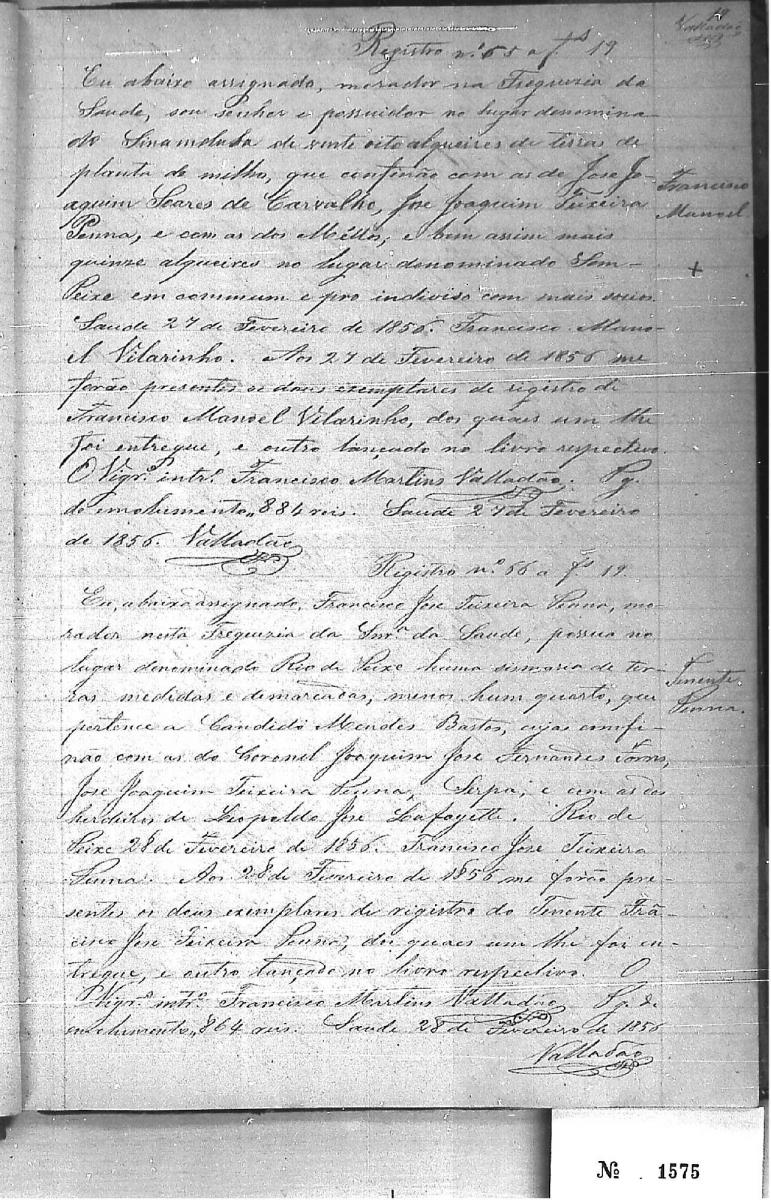 19
Valladão
Registro nº 65 a fs 19
Eu abaixo assignado, morador na Freguezia da
Saude, sou senhor e possuidor no lugar denomina-
do de vinte oito alqueires de terras de
planta de milho, que confinão com as de José Jo-
aquim Soares de Carvalho, José Joaquim Teixeira
Penna, e com as dos Mellos, e bem assim mais
quinze alqueires no lugar denominado Sem-
Peixe em commum e pro indiviso com mais socios.
Saude 27 de Fevereiro de 1856. Francisco Mano-
el Vilarinho. Aos 27 de Fevereiro de 1856 me
forão presentes os dous exemplares de registro de
Francisco Manoel Vilarinho, dos quaes um lhe
foi entregue, e outro lançado no livro respectivo.
O Vigrº intrº Francisco Martins Valladão. Pg.
de emolumento,, 884 reis. Saude 27 de Fevereiro
de 1856. Valladão
Francisco
Manoel.
+
Registro nº 66 a fs 19.
Eu, abaixo assignado, Francisco José Teixeira Penna, mo-
rador nesta Freguezia da Snrª da Saude, possua no
lugar denominado Rio de Peixe huma sismaria de ter-
ras medidas e demarcadas, menos hum quarto, que
pertence a Candido Mendes Bastos, cujas confi-
não com as do Coronel Joaquim José Fernandes Torres,
José Joaquim Teixeira Penna, Serpa, e com as dos
herdeiros de Leopoldo José Lafayette. Rio de
Peixe 28 de Fevereiro de 1856. Francisco José Teixeira
Penna. Aos 28 de Fevereiro de 1856 me forão pre-
sentes os dous exemplares de registro do Tenente Frã-
cisco José Teixeira Penna, dos quaes um lhe foi en-
tregue, e outro lançado no livro respectivo. O
Vigrº intrº Francisco Martins Valladão Pg. de
emolumento,, 864 reis. Saude 28 de Fevereiro de 1856
Valladão
Tenente
Penna.
Nº . 1575